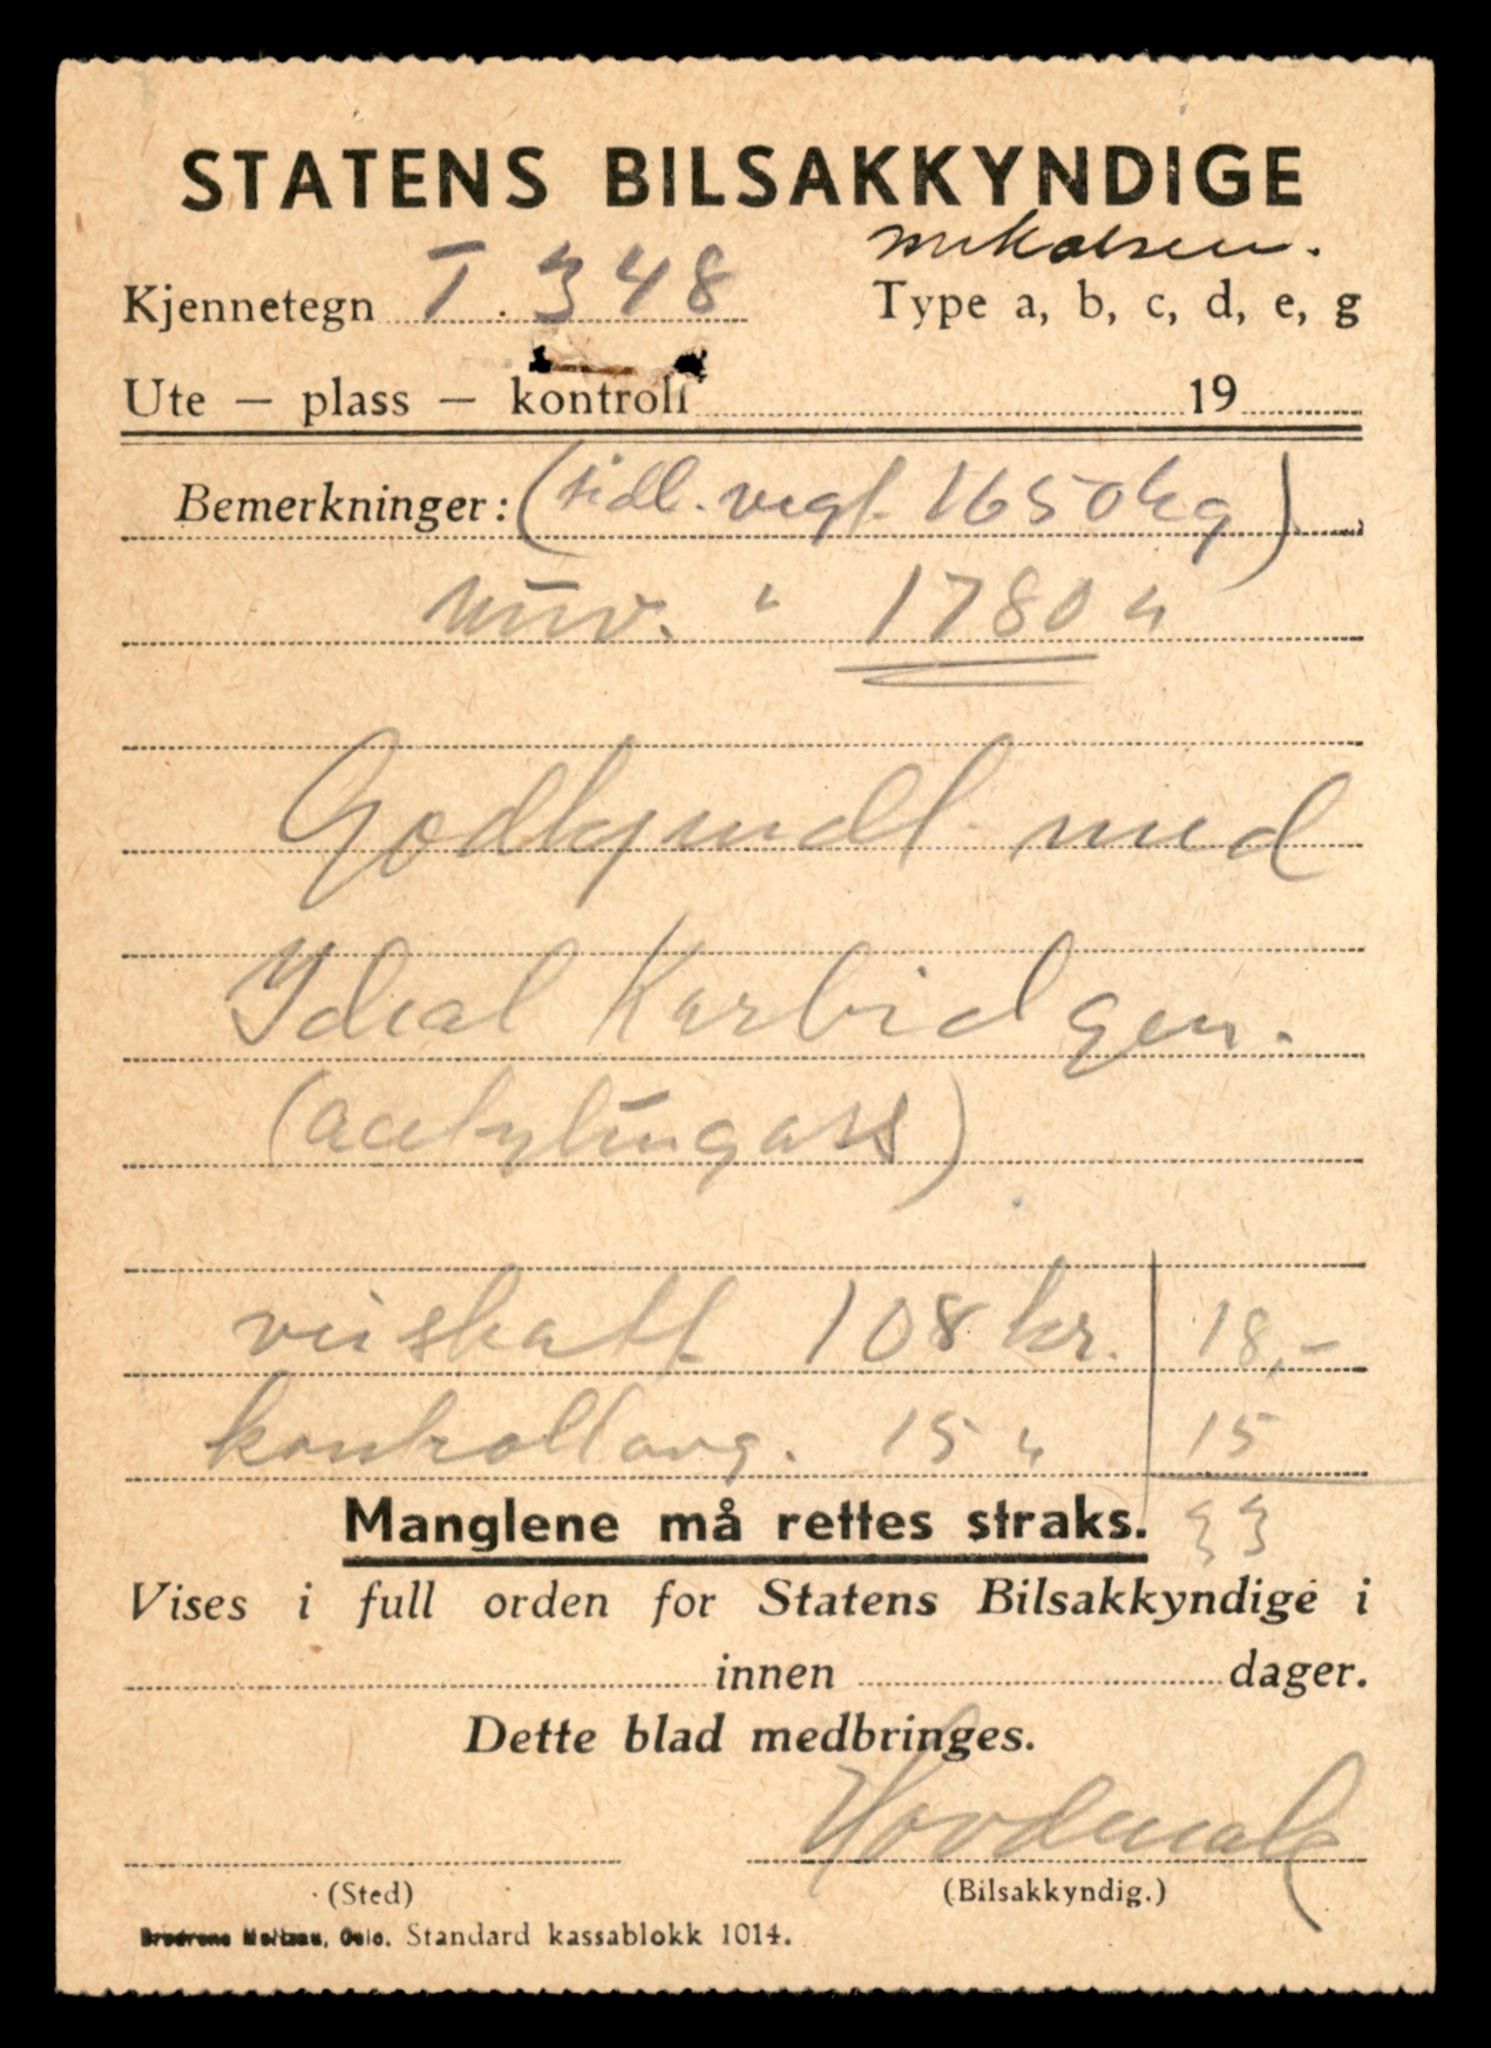 STATENS BILSAKKYNDIGE
Mikalsen.
Kjennetegn T. 348 Type a, b, c, d, e, g
Ute — plass — kontroll 19
Bemerkninger: (tidl. vegt. 1650 kg)
nuv. " 1780 "
Godkjendt med
Ideal Karbidgen.
(acetylengass)
veiskatt 108 kr. 18,-
kontrollavg. 15 " 15
Manglene må rettes straks. 33
Vises i full orden for Statens Bilsakkyndige i
innen dager.
Dette blad medbringes.
(Sted) (Bilsakkyndig.)
Oslo. Standard kassablokk 1014.